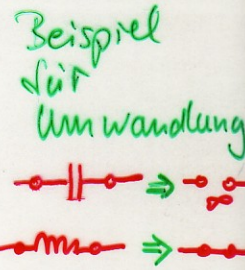 Beispiel
für
Umwandlung